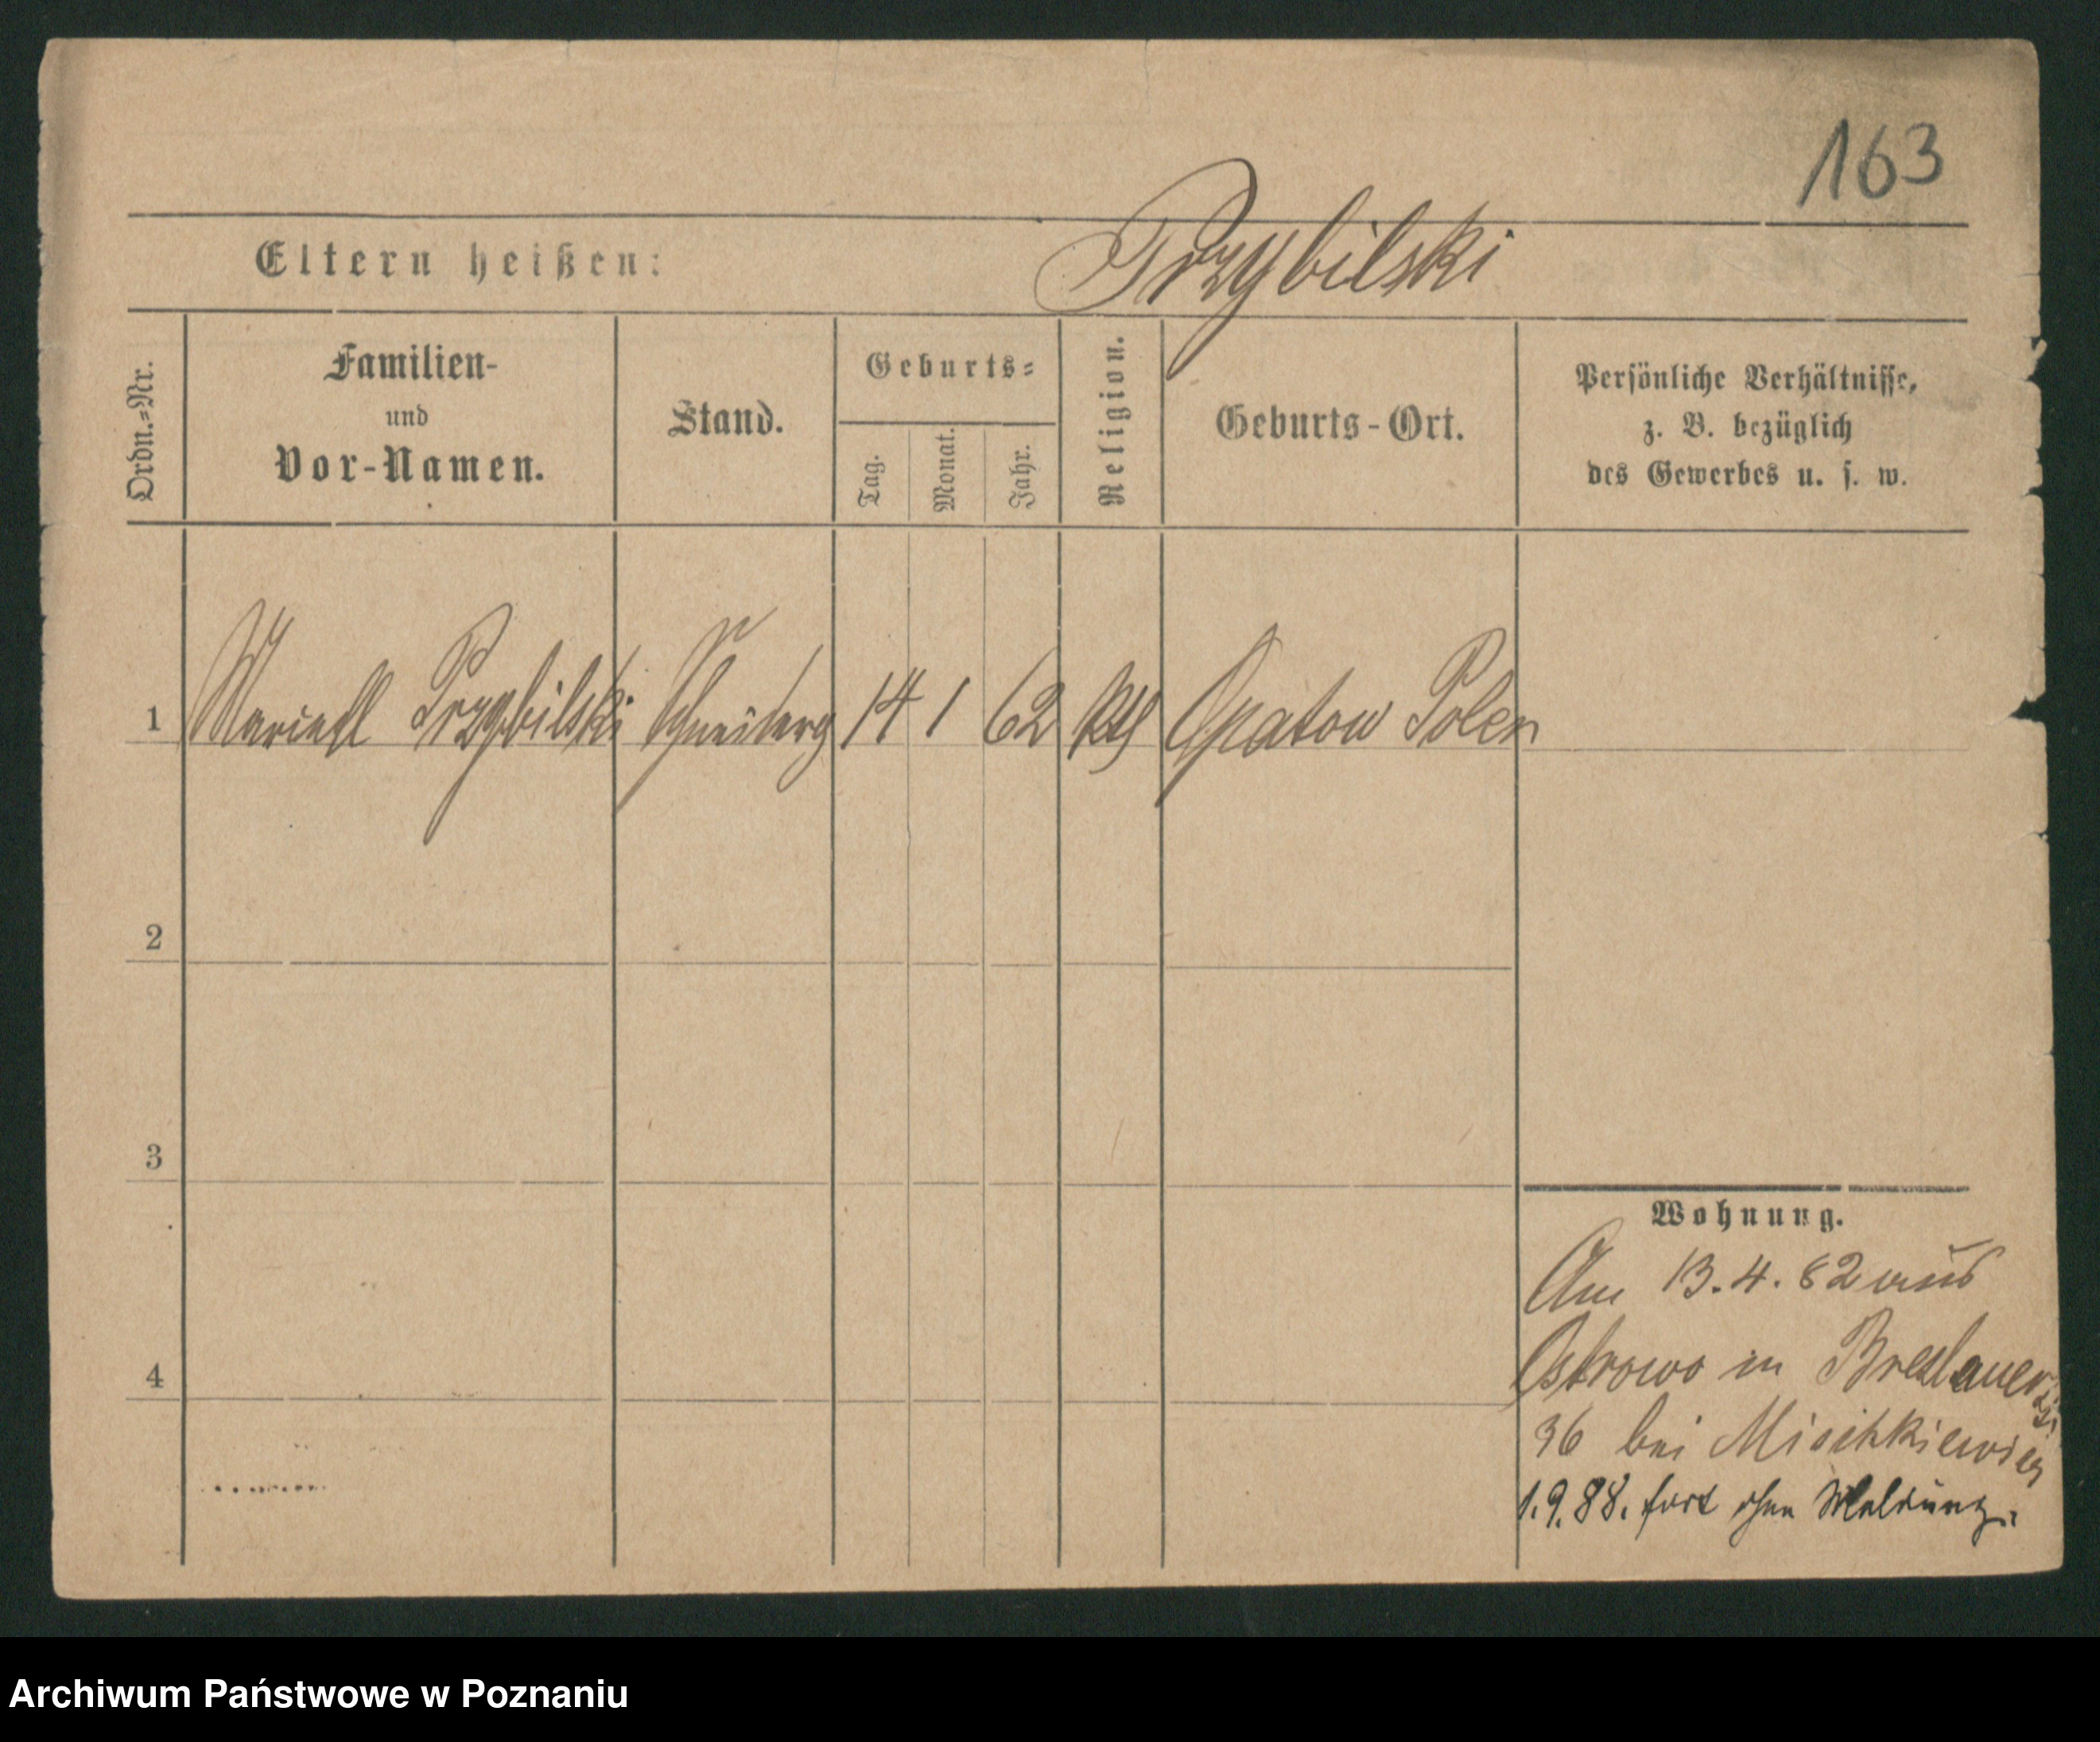 163
Przybilski
Eltern heißen:
Ordn.=Nr.
Familien-
und
Vor-Namen.
Stand.
Geburts=
Tag.
Monat.
Jahr.
Religion.
Geburts-Ort.
Persönliche Verhältnisse,
z. B. bezüglich
des Gewerbes u. s. w.
1 Przybilski 14 1 62 kth Opatow Polen
2
3
4
Wohnung.
Am 13.4.82 aus
Ostrowo in Breslauerstr.
36 bei
1.9.88. fort ohne Meldung.
Archiwum Państwowe w Poznaniu